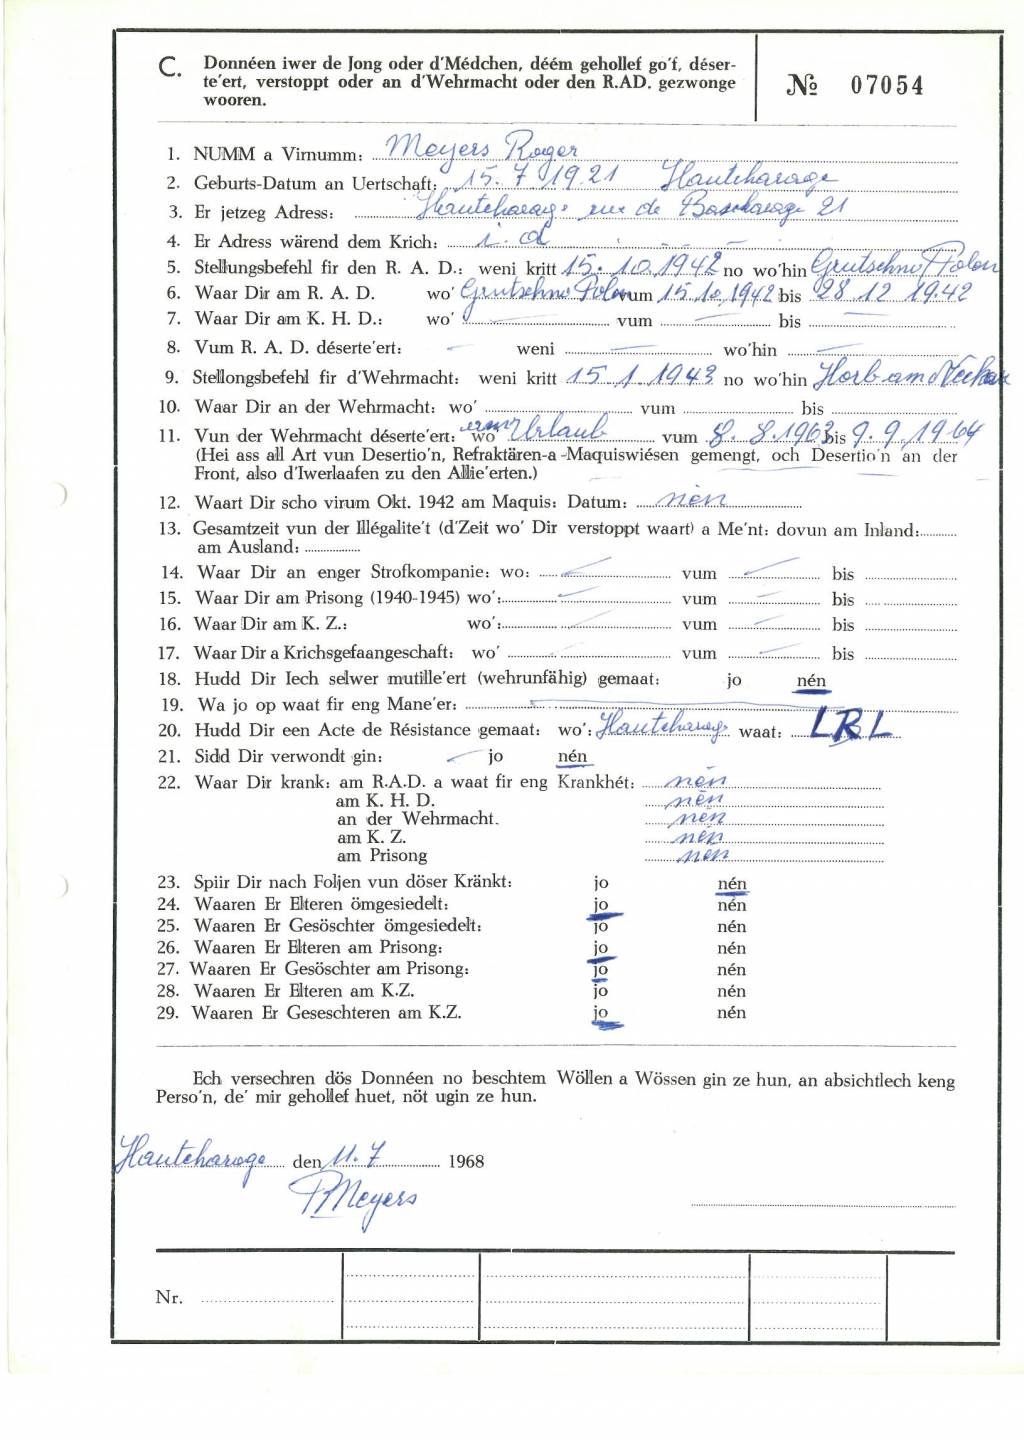 C. Donnéen iwer de Jong oder d'Médchen, déém gehollef go'f, déser-
te'ert, verstoppt oder an d'Wehrmacht oder den R.AD. gezwonge
wooren.
№ 07054
1. NUMM a Virnumm: Meyers Roger
2. Geburts-Datum an Uertschaft: 15.7 1921 Hautcharage
3. Er jetzeg Adress: Hautcharage rue de Bascharage 21
4. Er Adress wärend dem Krich: i. d
5. Stellungsbefehl fir den R. A. D.: weni kritt 15.10.1942 no wo'hin Grutschno Polon
6. Waar Dir am R. A. D. wo' Grutschno Polon vum 15.10.1942 bis 28 12 1942
7. Waar Dir am K. H. D.: wo' vum bis
8. Vum R. A. D. déserte'ert: weni wo'hin
9. Stellongsbefehl fir d'Wehrmacht: weni kritt 15 1 1943 no wo'hin Horb am Neckar
10. Waar Dir an der Wehrmacht: wo' vum bis
11. Vun der Wehrmacht déserte'ert: wo Urlaub vum 8. 8.1963 bis 9. 9. 1964
(Hei ass all Art vun Desertio'n, Refraktären-a -Maquiswiésen gemengt, och Desertio'n an der
Front, also d'Iwerlaafen zu den Allie'erten.)
12. Waart Dir scho virum Okt. 1942 am Maquis: Datum: nén
13. Gesamtzeit vun der Illégalite't (d'Zeit wo' Dir verstoppt waart) a Me'nt: dovun am Inland:
am Ausland:
14. Waar Dir an enger Strofkompanie: wo: vum bis
15. Waar Dir am Prisong (1940-1945) wo': vum bis
16. Waar Dir am K. Z.: wo': vum bis
17. Waar Dir a Krichsgefaangeschaft: wo' vum bis
18. Hudd Dir Iech selwer mutille'ert (wehrunfähig) gemaat: jo nén
19. Wa jo op waat fir eng Mane'er:
20. Hudd Dir een Acte de Résistance gemaat: wo': Hautcharage waat: LRL
21. Sidd Dir verwondt gin: jo nén
22. Waar Dir krank: am R.A.D. a waat fir eng Krankhét: nén
am K. H. D. nén
an der Wehrmacht. nén
am K. Z. nén
am Prisong nén
23. Spiir Dir nach Foljen vun döser Kränkt: jo nén
24. Waaren Er Elteren ömgesiedelt: jo nén
25. Waaren Er Gesöschter ömgesiedelt: jo nén
26. Waaren Er Elteren am Prisong: jo nén
27. Waaren Er Gesöschter am Prisong: jo nén
28. Waaren Er Elteren am K.Z. jo nén
29. Waaren Er Geseschteren am K.Z. jo nén
Ech versechren dös Donnéen no beschtem Wöllen a Wössen gin ze hun, an absichtlech keng
Perso'n, de' mir gehollef huet, nöt ugin ze hun.
Hautcharage den 11.7 1968
RMeyers
Nr.